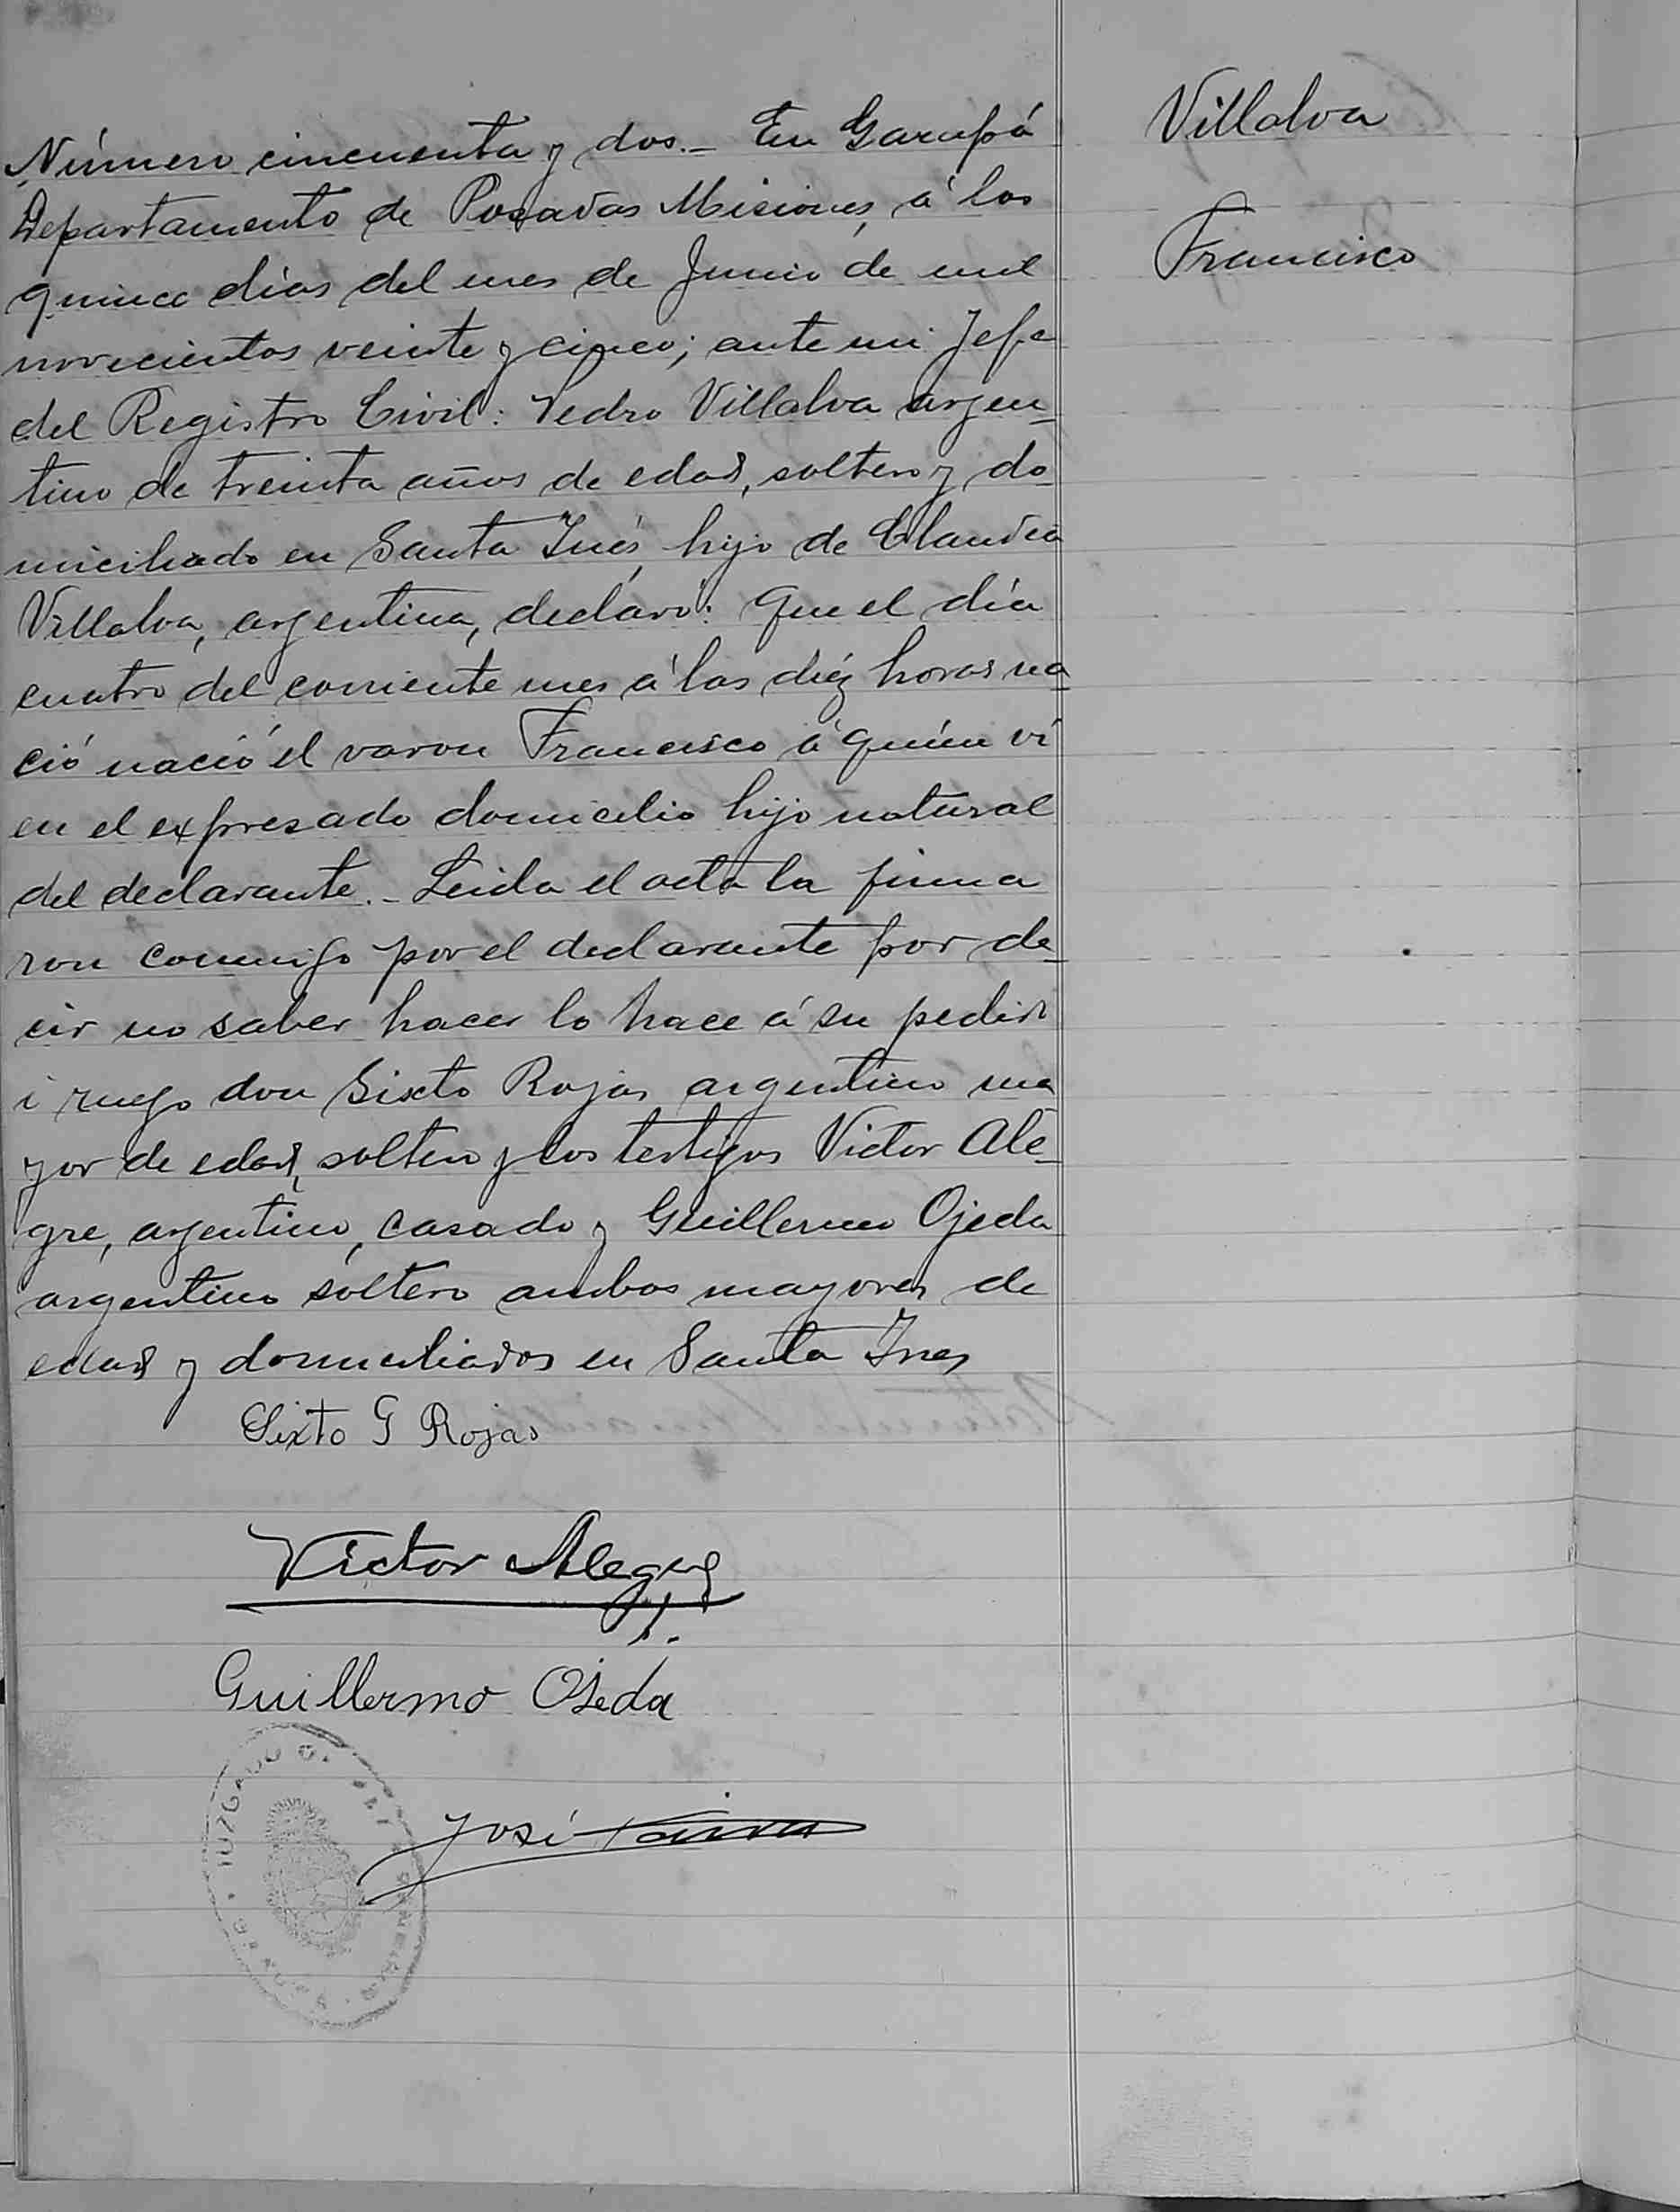 Número cincuenta y dos.- En Garupá
Departamento de Posadas Misiones, á los
quince dias del mes de Junio de mil
novecientos veinte y cinco; ante mi Jefe
del Registro Civil: Pedro Villalva argen-
tino de treinta años de edad, soltero y do-
miciliado en Santa Inés, hijo de Claudia
Villalva, argentina, declaró: Que el día
cuatro del corriente mes á las diéz horas na-
ció nació el varon Francisco á quién ví
en el expresado domicilio hijo natural
del declarante.- Leida el acta la firma
ron conmigo por el declarante por de-
cir no saber hacer lo hace á su pedido
i ruego don Sixto Rojas argentino ma-
yor de edad, soltero y los testigos Victor Ale-
gre, argentino, casado y Guillermo Ojeda
argentino soltero ambos mayores de
edad y domiciliados en Santa Ines
Sixto G Rojas
Victor Alegre
Guillermo Ojeda
José
JUZGADO DE PAZ
MISIONES
Villalva
Francisco